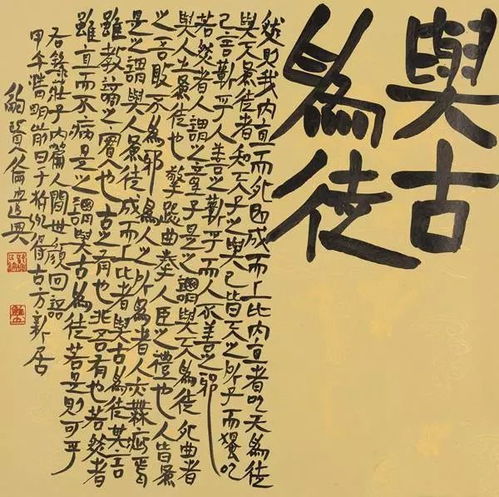 與古
為徒
然則我內直而外曲成而上比內直者與天為徒
與天為徒者知天子之與己皆天之所子而獨以
己言蘄乎人善之蘄乎而人不善之邪
若然者人謂之童子是之謂與天為徒外曲者
與人之為徒也擎跽曲拳人臣之禮也人皆為
之吾敢不為邪為人之所為者人亦無疵焉
是之謂與人為徒成而上比者與古為徒其言
雖教謫之實也古之有也非吾有也若然者
雖直而不病是之謂與古為徒若是則可乎
右錄莊子內篇人間世顏回語
甲午清明前日于得古方新居